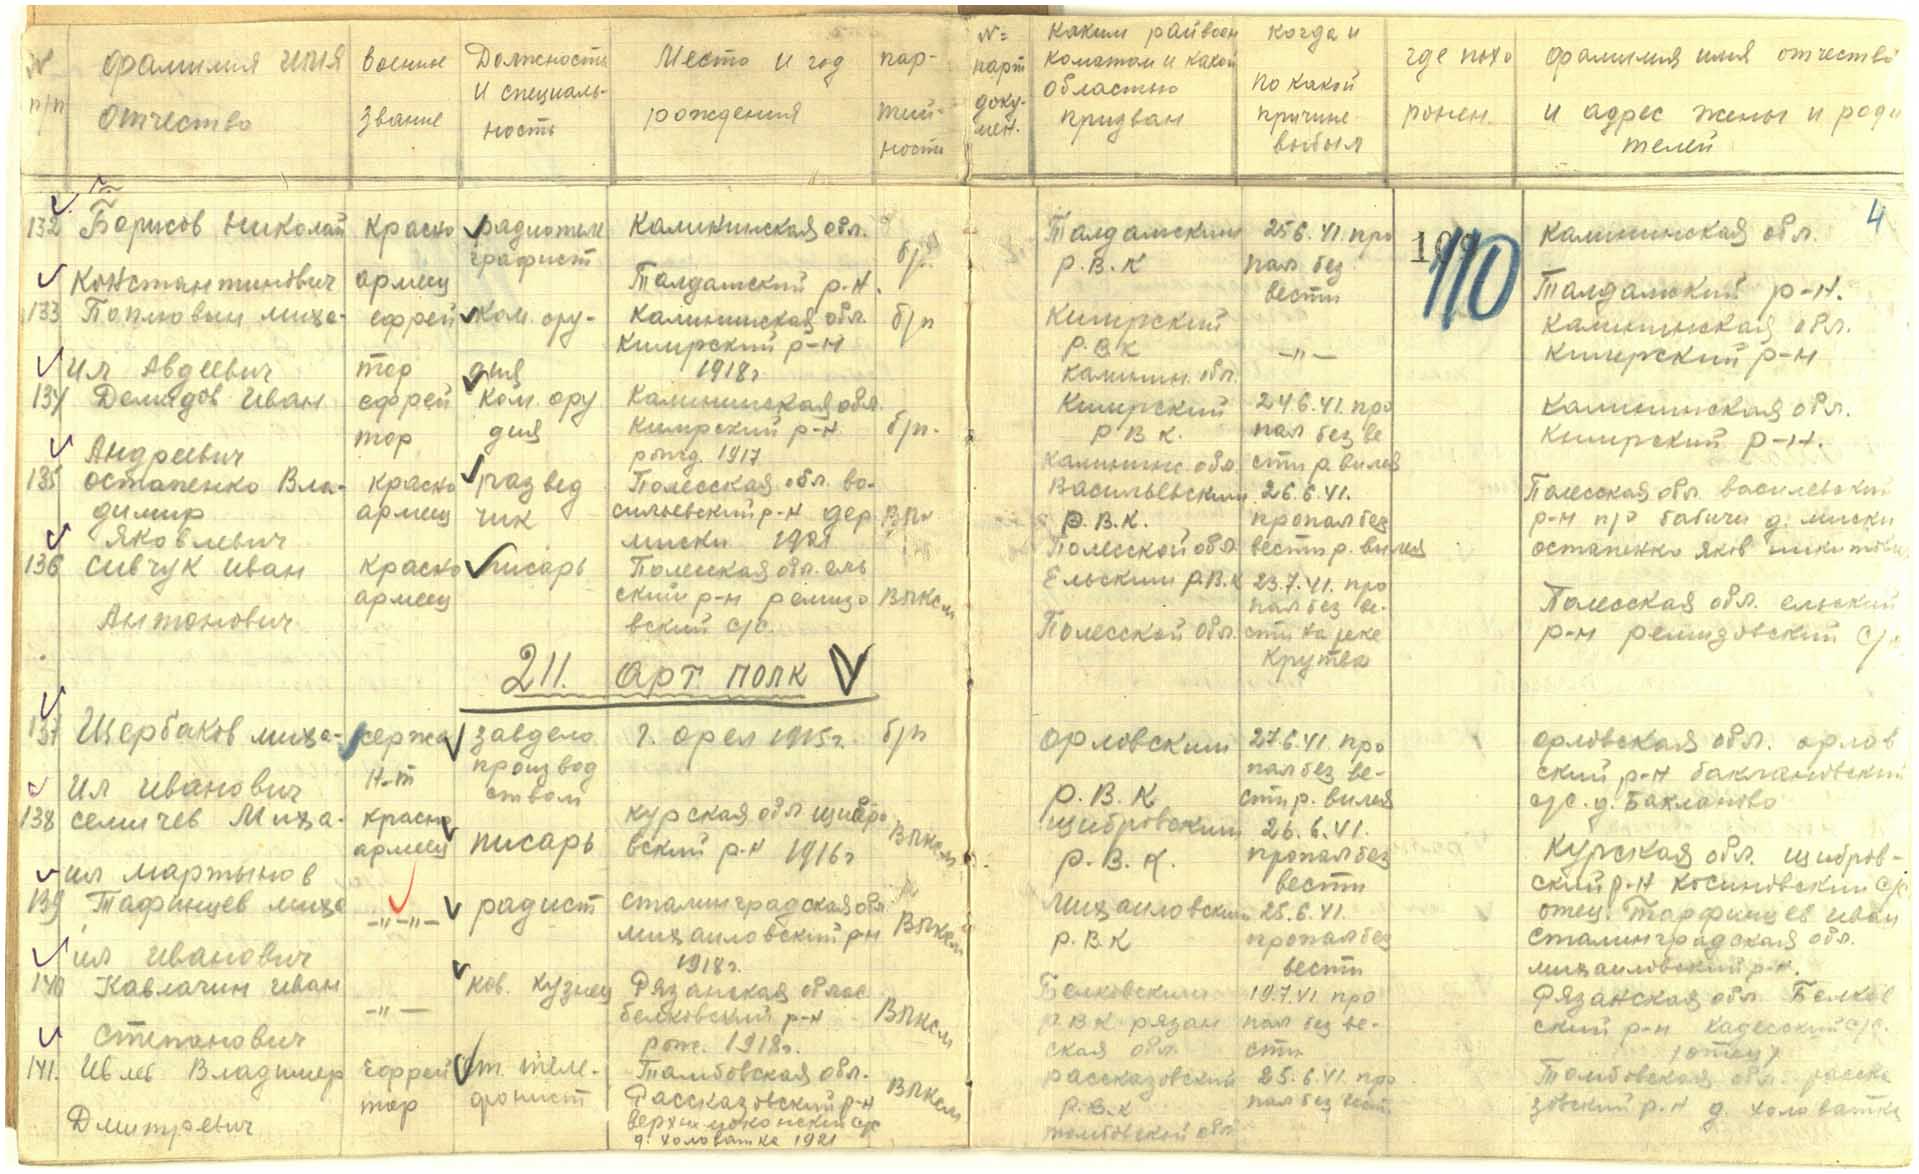 № п/п
фамилия имя отчество
военное звание
Должность и специальность
Место и год рождения
пар-
тий-
ности
№=
парт
доку-
мен.
каким райвоен
коматом и какой
областью
призван
когда и
по какой
причине
выбыл
где похо
ронен.
фамилия имя отчество
и адрес жены и роди
телей
4
109
110
132 Борисов Николай
Константинович
красно
армеец
радиотеле
графист
Калининская обл.
Талдомский р-н.
б/п.
Талдомским
Р.В.К
25.6.41. про
пал без
вести
Калининская обл.
Талдомский р-н.
133
Миха-
ил Авдеевич
ефрей
тор
Ком. ору-
дия
Калининская обл.
Кимрский р-н
1918г
б/п
Кимрский
Р.В.К
Калинин. обл.
—"—
Калининская обл.
Кимрский р-н
134 Демидов Иван
Андреевич
ефрей
тор
Ком. ору
дия
Калининская обл.
Кимрский р-н
рожд. 1917
б/п.
Кимрский
Р В К.
Калинин. обл.
24.6.41. про
пал без ве
сти р. вилея
Калининская обл.
Кимрский р-н.
135 Остапенко Вла-
димир
Яковлевич
красно
армеец
развед
чик
Полесская обл. ва-
сильевский р-н дер.
миски 1921
Васильевским
Р.В.К.
Полесской обл.
26.6.41.
пропал без
вести р. вилея
Полесская обл. василевский
р-н п/о бабичи д. миски
остапенко яков
136 Сивчук Иван
Антонович
красно
армеец
писарь
Полесская обл. ель
ский р-н ремизо
вский с/с.
ВЛКСМ
Ельским Р.В.К
Полесской обл.
23.7.41. про
пал без ве-
сти на реке
Крутва
Полесская обл. ельский
р-н ремизовский с/с
211. арт полк
137 Щербаков Миха-
ил Иванович
сержа
н-т
завдело
производ
ством
г. орел 1915г.
б/п
орловским
Р.В.К
27.6.41 про
пал без ве-
сти р. вилея
орловская обл. орлов
ский р-н баклановский
с/с. д. Бакланово
138 Семичев Миха-
ил мартынов
красно
армеец
писарь
курская обл. щигро
вский р-н 1916г
ВЛКСМ
щигровским
Р.В.К.
26.6.41.
пропал без
вести
Курская обл. щигров-
ский р-н косиновский с/с
139 Тафинцев миха
ил Иванович
—"—"—
радист
Сталинградская обл
михайловский р-н
1918г.
ВЛКСМ
Михайловским
Р.В.К
25.6.41.
пропал без
вести
отец. Тарфинцев Иван
Сталинградская обл.
михайловский р-н.
140 Кавлачин Иван
Степанович
—"—
ков. кузнец
Рязанская облас
белковский р-н
рож. 1918г.
ВЛКСМ
Белковским
РВК рязан
ская обл.
19.7.41 про
пал без ве-
сти
Рязанская обл. Белков
ский р-н с/с.
(отец)
141. Ивлев Владимир
Дмитревич
Ефрей
тор
ст. теле-
фонист
Тамбовская обл.
Рассказовский р-н
с/с
д. холоватка 1921
ВЛКСМ
рассказовский
Р.В.К
тамбовской обл
25.6.41. про
пал без вести
Тамбовская обл. расска
зовский р-н д. холоватка